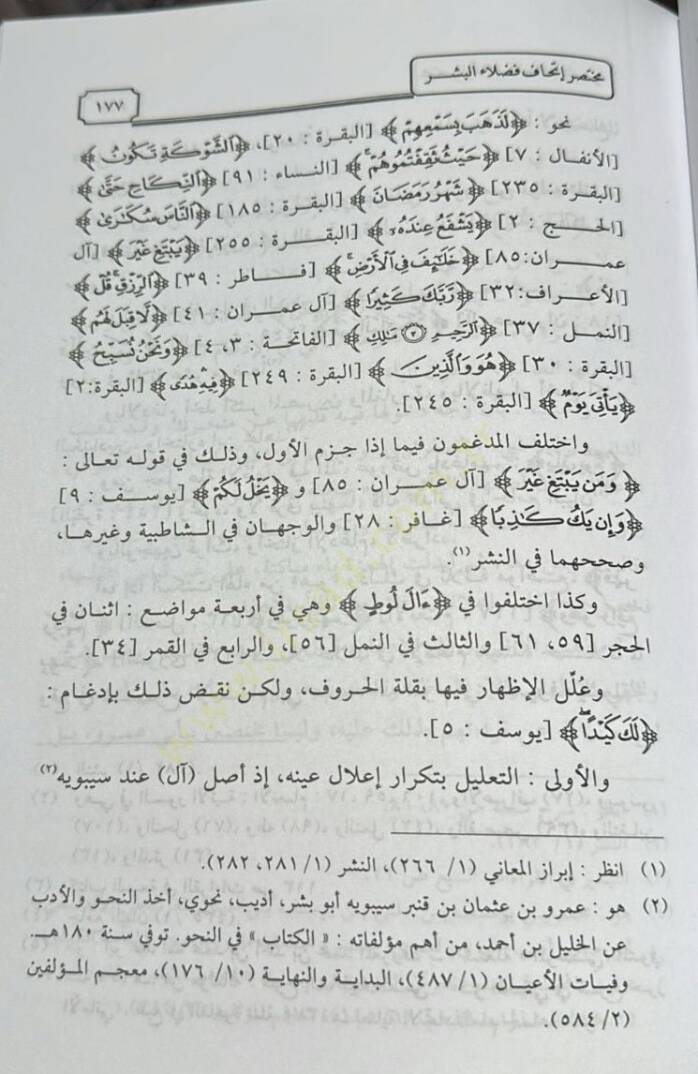 مختصر إتحاف فضلاء البشـر
١٧٧
نحو : ﴿لَذَهَبَ بِسَمْعِهِمْ﴾ [البقرة : ٢٠]، ﴿الشَّوْكَةِ تَكُونُ﴾
[الأنفال : ٧] ﴿حَيْثُ ثَقِفْتُمُوهُمْ﴾ [النساء : ٩١] ﴿النِّكَاحِ حَتَّىٰ﴾
[البقرة : ٢٣٥] ﴿شَهْرُ رَمَضَانَ﴾ [البقرة : ١٨٥] ﴿النَّاسَ سُكَارَىٰ﴾
[الحـج : ٢] ﴿يَشْفَعُ عِندَهُ﴾ [البقـرة : ٢٥٥] ﴿يَبْتَغِ غَيْرَ﴾ [آل
عمـران:٨٥] ﴿خَلَائِفَ فِي الْأَرْضِ﴾ [فـاطر : ٣٩] ﴿الرِّزْقِ قُلْ﴾
[الأعراف:٣٢] ﴿رَبَّكَ كَثِيرًا﴾ [آل عمران : ٤١] ﴿لَا قِبَلَ لَهُم﴾
[النمـل : ٣٧] ﴿الرَّحِيمِ ٣ مَالِكِ﴾ [الفاتحة : ٣، ٤] ﴿وَنَحْنُ نُسَبِّحُ﴾
[البقرة : ٣٠] ﴿هُوَ وَالَّذِينَ﴾ [البقرة : ٢٤٩] ﴿فِيهِ هُدًى﴾ [البقرة:٢]
﴿يَأْتِيَ يَوْمٌ﴾ [البقرة : ٢٤٥].
واختلف المدغمون فيما إذا جزم الأول، وذلك في قوله تعالى :
﴿وَمَن يَبْتَغِ غَيْرَ﴾ [آل عمـران : ٨٥] و ﴿يَخْلُ لَكُمْ﴾ [يوسـف : ٩]
﴿وَإِن يَكُ كَاذِبًا﴾ [غافر : ٢٨] والوجهان في الشاطبية وغيرها،
وصححهما في النشر(١).
وكذا اختلفوا في ﴿ءَالَ لُوطٍ﴾ وهي في أربعة مواضع : اثنان في
الحجر [٥٩، ٦١] والثالث في النمل [٥٦]، والرابع في القمر [٣٤].
وعُلّل الإظهار فيها بقلة الحروف، ولكن نقض ذلك بإدغام :
﴿لَكَ كَيْدًا﴾ [يوسف : ٥].
والأولى : التعليل بتكرار إعلال عينه، إذ أصل (آل) عند سيبويه(٢)
(١) انظر : إبراز المعاني (١/ ٢٦٦)، النشر (١/ ٢٨١، ٢٨٢).
(٢) هو : عمرو بن عثمان بن قنبر سيبويه أبو بشر، أديب، نحوي، أخذ النحو والأدب
عن الخليل بن أحمد، من أهم مؤلفاته : « الكتاب » في النحو. توفي سنة ١٨٠هـ.
وفيات الأعيان (١/ ٤٨٧)، البداية والنهاية (١٠/ ١٧٦)، معجم المؤلفين
(٢/ ٥٨٤).